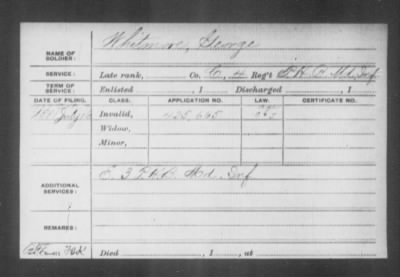 NAME OF SOLDIER: Whitmore, George
SERVICE: Late rank, Co. C, 4 Reg't P.H.B. Md. Inf
TERM OF SERVICE: Enlisted , 1 Discharged , 1
DATE OF FILING. CLASS. APPLICATION NO. LAW. CERTIFICATE NO.
July Invalid,
Widow,
Minor,
ADDITIONAL SERVICES: E. 3 P.H.B. Md. Inf
REMARKS:
Died , 1 , at